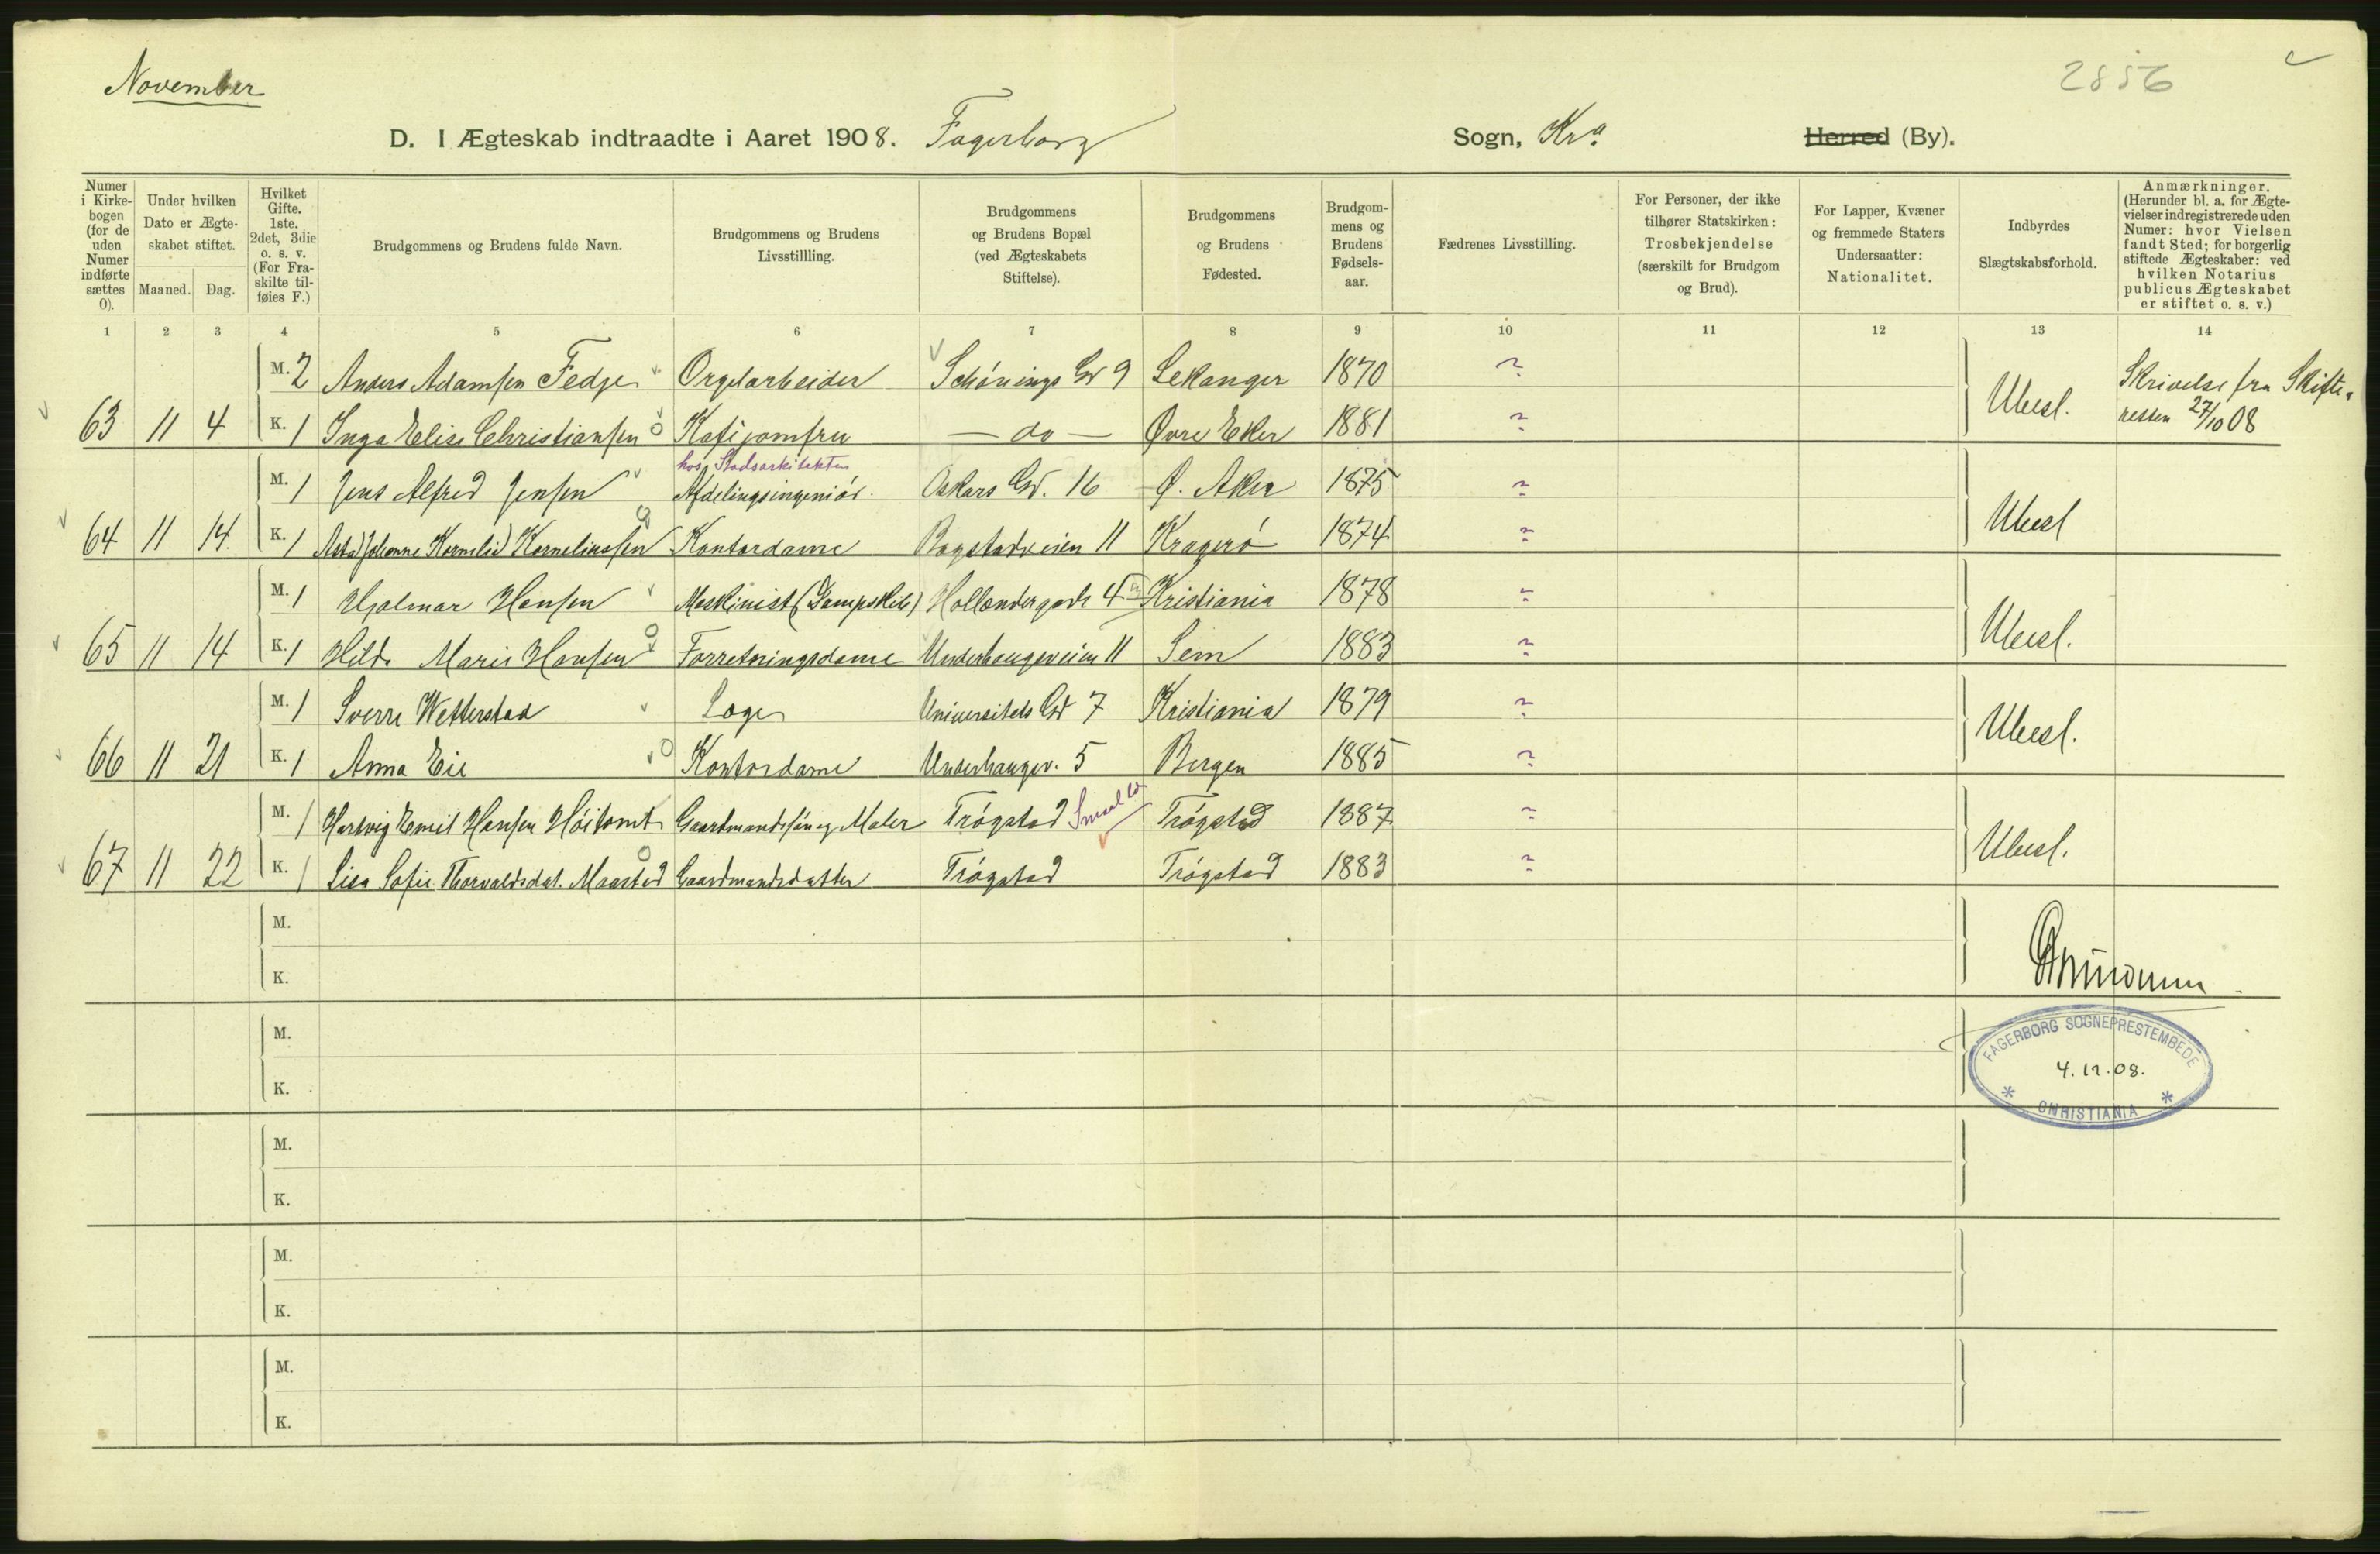 November
2856
D. I Ægteskab indtraadte i Aaret 1908. Fagerborg Sogn, Kra. Herred (By).
Numer i Kirkebogen (for de uden Numer indførte sættes 0).
Under hvilken Dato er Ægteskabet stiftet.
Maaned. Dag.
Hvilket Gifte. 1ste, 2det, 3die o. s. v. (For Fraskilte tilføies F.)
Brudgommens og Brudens fulde Navn.
Brudgommens og Brudens Livsstillling.
Brudgommens og Brudens Bopæl (ved Ægteskabets Stiftelse).
Brudgommens og Brudens Fødested.
Brudgommens og Brudens Fødselsaar.
Fædrenes Livsstilling.
For Personer, der ikke tilhører Statskirken: Trosbekjendelse (særskilt for Brudgom og Brud).
For Lapper, Kvæner og fremmede Staters Undersaatter: Nationalitet.
Indbyrdes Slægtskabsforhold.
Anmærkninger. (Herunder bl. a. for Ægtevielser indregistrerede uden Numer: hvor Vielsen fandt Sted; for borgerlig stiftede Ægteskaber: ved hvilken Notarius publicus Ægteskabet er stiftet o. s. v.)
1 2 3 4 5 6 7 8 9 10 11 12 13 14
M. 2 Anders Adamsen Fedje Orgelarbeider Schönings Gd 9 Lekanger 1870 ? Skrivelse fra Skifte-
63 11 4 K. 1 Inga Elise Christiansen Kafijomfru — do — Øvre Eker 1881 ? Ubesl. retten 27/10 08
hos Stadsarkitekten
M. 1 Jens Alfred Jensen Afdelingsingeniör. Oskars Gd. 16 Ø. Aker 1875 ?
64 11 14 K. 1 Asta Johanne Kornelie Korneliussen Kontordame Bogstadveien 11 Kragerö 1874 ? Ubesl
M. 1 Hjalmar Hansen Maskinist (Dampskib) Hollendergade 4 Kristiania 1878 ?
65 11 14 K. 1 Hilda Marie Hansen Forretningsdame Underhaugsveien 11 Sem 1883 ? Ubesl.
M. 1 Sverre Wetterstad Læge Universitets Gd 7 Kristiania 1879 ?
66 11 21 K. 1 Anna Eie Kontordame Underhaugsv. 5 Bergen 1885 ? Ubesl.
M. 1 Hartvig Emil Hansen Höitomt Gaardmandssön og Maler Trögstad Trögstad 1887 ?
67 11 22 K. 1 Lisa Sofie Thorvaldsdat. Maastad Gaardmandsdatter Trögstad Trögstad 1883 ? Ubesl.
M.
K.
M.
K.
M.
K.
M.
K.
M.
K.
FAGERBORG SOGNEPRESTEMBEDE
4.12.08.
* CHRISTIANIA *